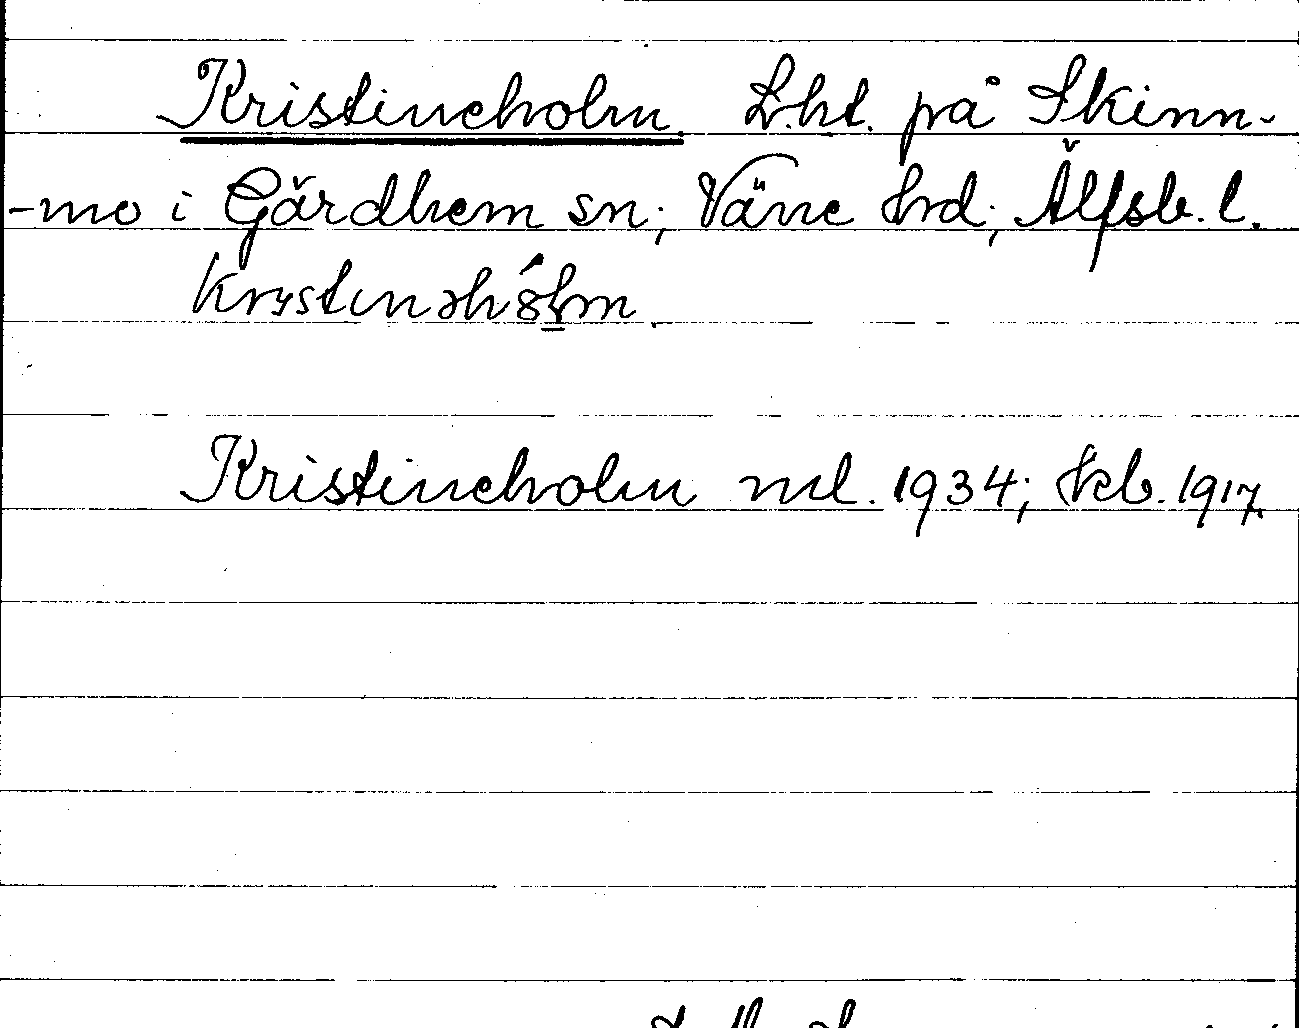 Kristineholm. Lht. på Skinn-
-mo i Gärdhem sn; Väne hrd; Älfsb. l.
Kristineholm ml. 1934; kb. 1917.